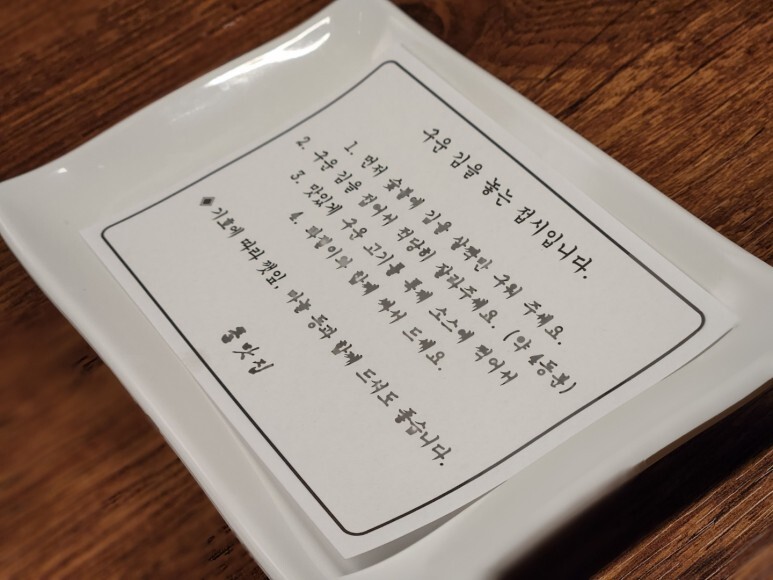 구운 김을 놓는 접시입니다.
1. 먼저 숯불에 김을 살짝만 구워 주세요.
2. 구운 김을 접어서 적당히 잘라주세요. (약 4등분)
3. 맛있게 구운 고기를 특제 소스에 찍어서
4. 파절이와 함께 싸서 드세요.
◈ 기호에 따라 깻잎, 마늘 등과 함께 드셔도 좋습니다.
맛집